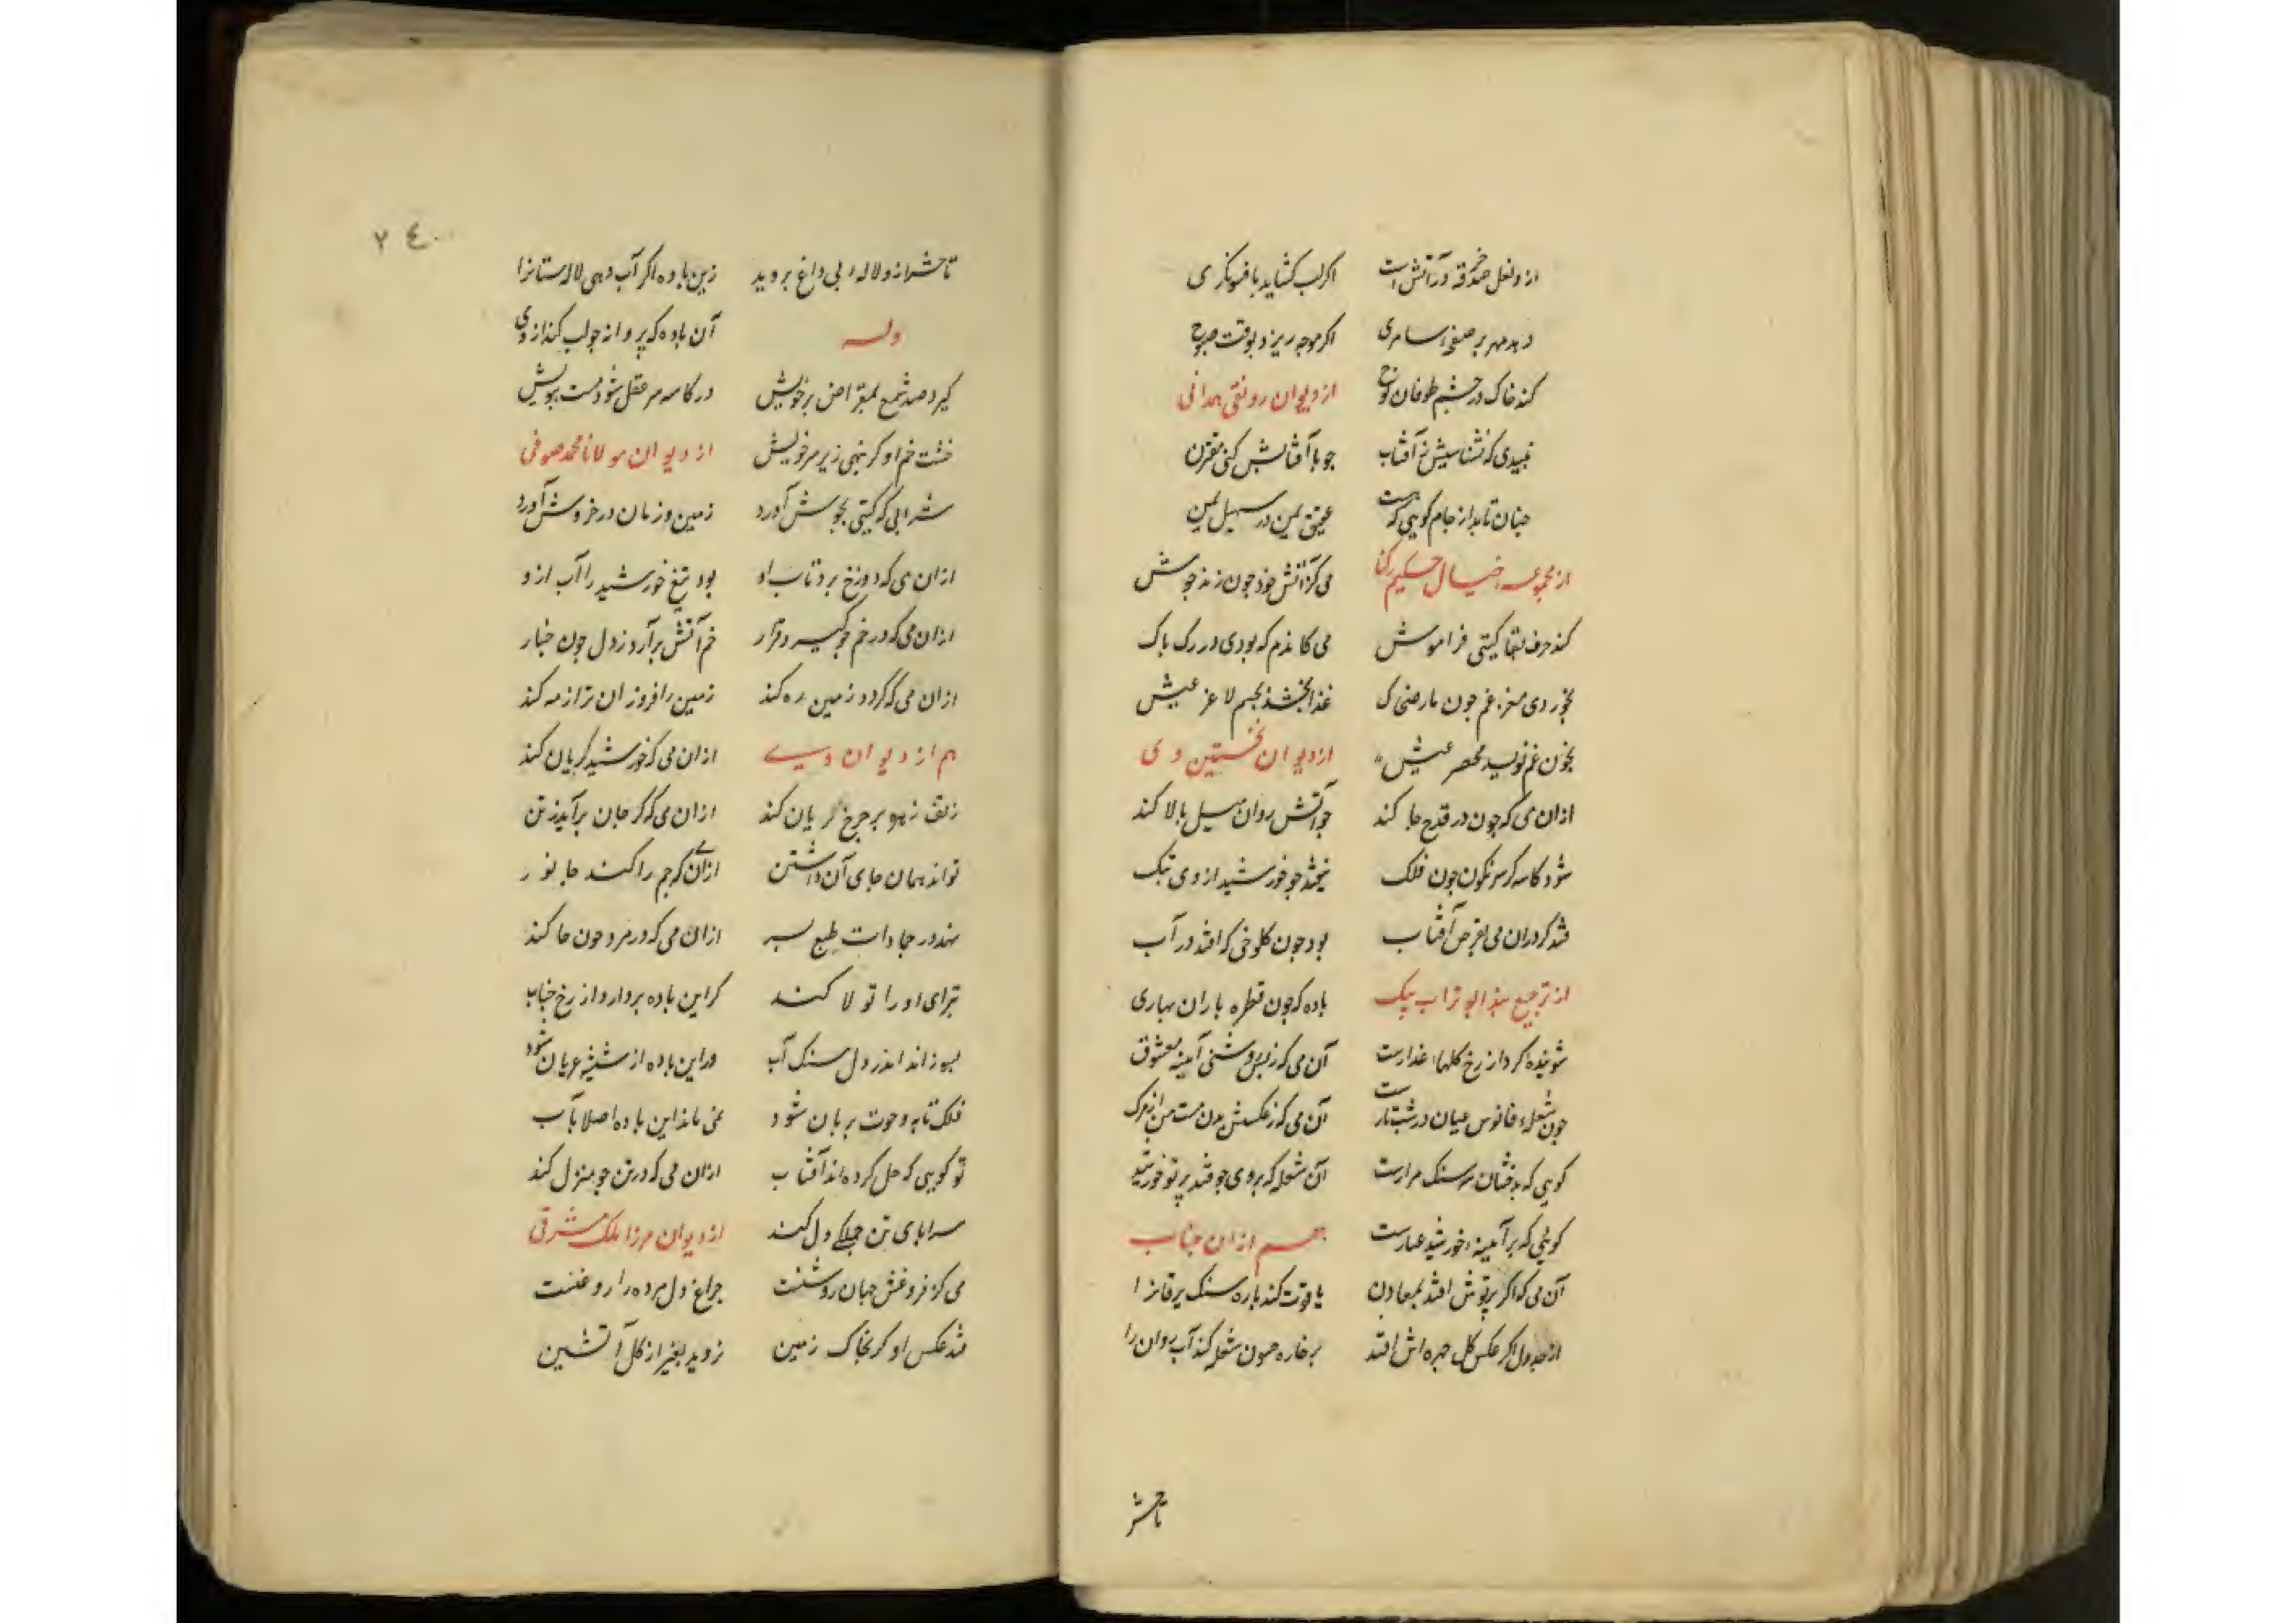 از و لعل در خرقه در آتش است اگر لب گشاید بافسونگری
دهد مهر بر صفحه سامری اگر موجه ریزد بوقت صبوح
کند خاک در چشم طوفان نوح از دیوان رونقی همدانی
نبیدی که نشناسیش ز آفتاب چو با آفتابش کنی مقترن
چنان تابد از جام گویی که هست عقیق یمن در سهیل یمن
از مجموعه خیال حکیم رکنا می کز آتش خود چون زند جوش
کند حرف بقا گیتی فراموش می کاندم که بودی در رگ تاک
بخوردی مغز غم چون مار ضحاک غذا بخشد بجسم لاغر عیش
بخون غم نویسد محضر عیش از دیوان نخستین وی
ازان می که چون در قدح جا کند چو آتش روان میل بالا کند
شود کاسه گر سرنگون چون فلک نیفتد چو خورشید از وی
فتد گر دران می قرص آفتاب بود چون کلوخی که افتد در آب
از ترجیع بند ابو تراب بیک باده که چون قطره باران بهاری
شوینده گرد از رخ گلهای عذارست آن می که ز بس روشنی آیینه معشوق
چون شعله فانوس عیان در شب تارست آن می که ز عکسش
گویی که بدخشان سر سنگ مزارست آن شعله که بر وی چو فتد پرتو خورشید
گویی که بر آیینه خورشید غبارست هم از ان جناب
آن می که اگر پرتوش افتد بمعادن یاقوت کند پاره سنگ یرقانرا
از جدول اگر عکس گل چهره اش افتد بر خاره چون شعله کند آب روان را
تا حشر
۲۴۰
تا حشر ازو لاله بی داغ بروید زین باده اگر آب دهی لاله ستانرا
وله آن باده که پروانه چو لب کند از وی
گیرد صد شمع بمقراض پر خویش در کاسه سر عقل شود مست ببویش
خشت خم او گر بنهی زیر سر خویش از دیوان مولانا محمد صوفی
شرابی که گیتی بجوش آورد زمین و زمان در خروش آورد
ازان می که دوزخ برد تاب او بود تیغ خورشید را آب ازو
ازان می که در خم چو گیرد قرار خم آتش برآرد ز دل چون خیار
ازان می که گر در زمین ره کند زمین را فروزان تر از مه کند
هم از دیوان ویست ازان می که خورشید گریان کند
زلف زهره بر چرخ بریان کند ازان می که گر جان برآید ز تن
تواند همان جای آن داشتن ازان می که جم را کند جانور
نهد در جمادات طبع بشر ازان می که در مرد چون جا کند
تبرای او را تولا کند گر این باده بردارد از رخ نقاب
بسوزاند اندر دل سنگ آب ور این باده از شیشه عریان شود
فلک تابه و حوت بریان شود نمی ماند این باده اصلا بآب
تو گویی که حل کرده اند آفتاب ازان می که در تن چو منزل کند
سراپای تن جملگی دل کند از دیوان مرزا ملک مشرقی
می کز فروغش جهان روشنست چراغ دل مرده را روغنست
فتد عکس او گر بخاک زمین نروید بغیر از گل آتشین